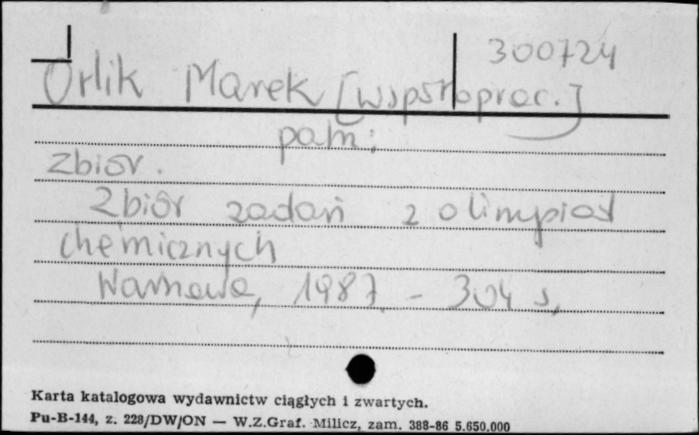 300724
Orlik Marek [współoprac.]
patrz:
Zbiór.
Zbiór zadań z olimpiad
chemicznych
Warszawa, 1987. - 304 s.
Karta katalogowa wydawnictw ciągłych i zwartych.
Pu-B-144, z. 228/DW/ON — W.Z.Graf. Milicz, zam. 388-86 5.650.000